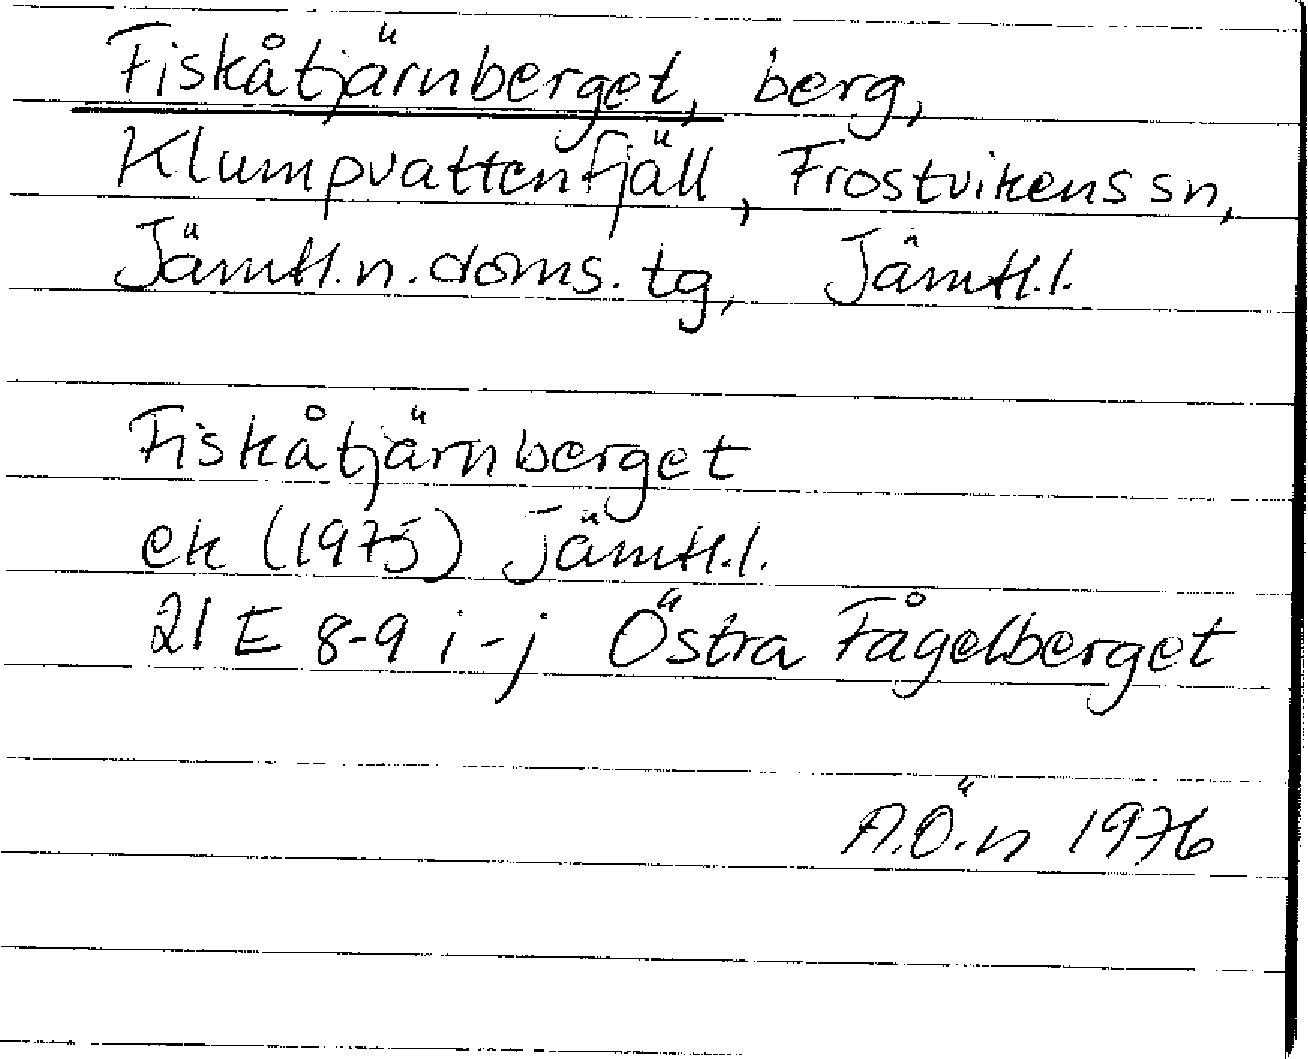 Fiskåtjärnberget, berg,
Klumpvattenfjäll, Frostvikens sn,
Jämtl.n.doms.tg, Jämtl.l.
Fiskåtjärnberget
ek (1975) Jämtl.l.
21 E 8-9 i-j Östra Fågelberget
A.Ö.n 1976